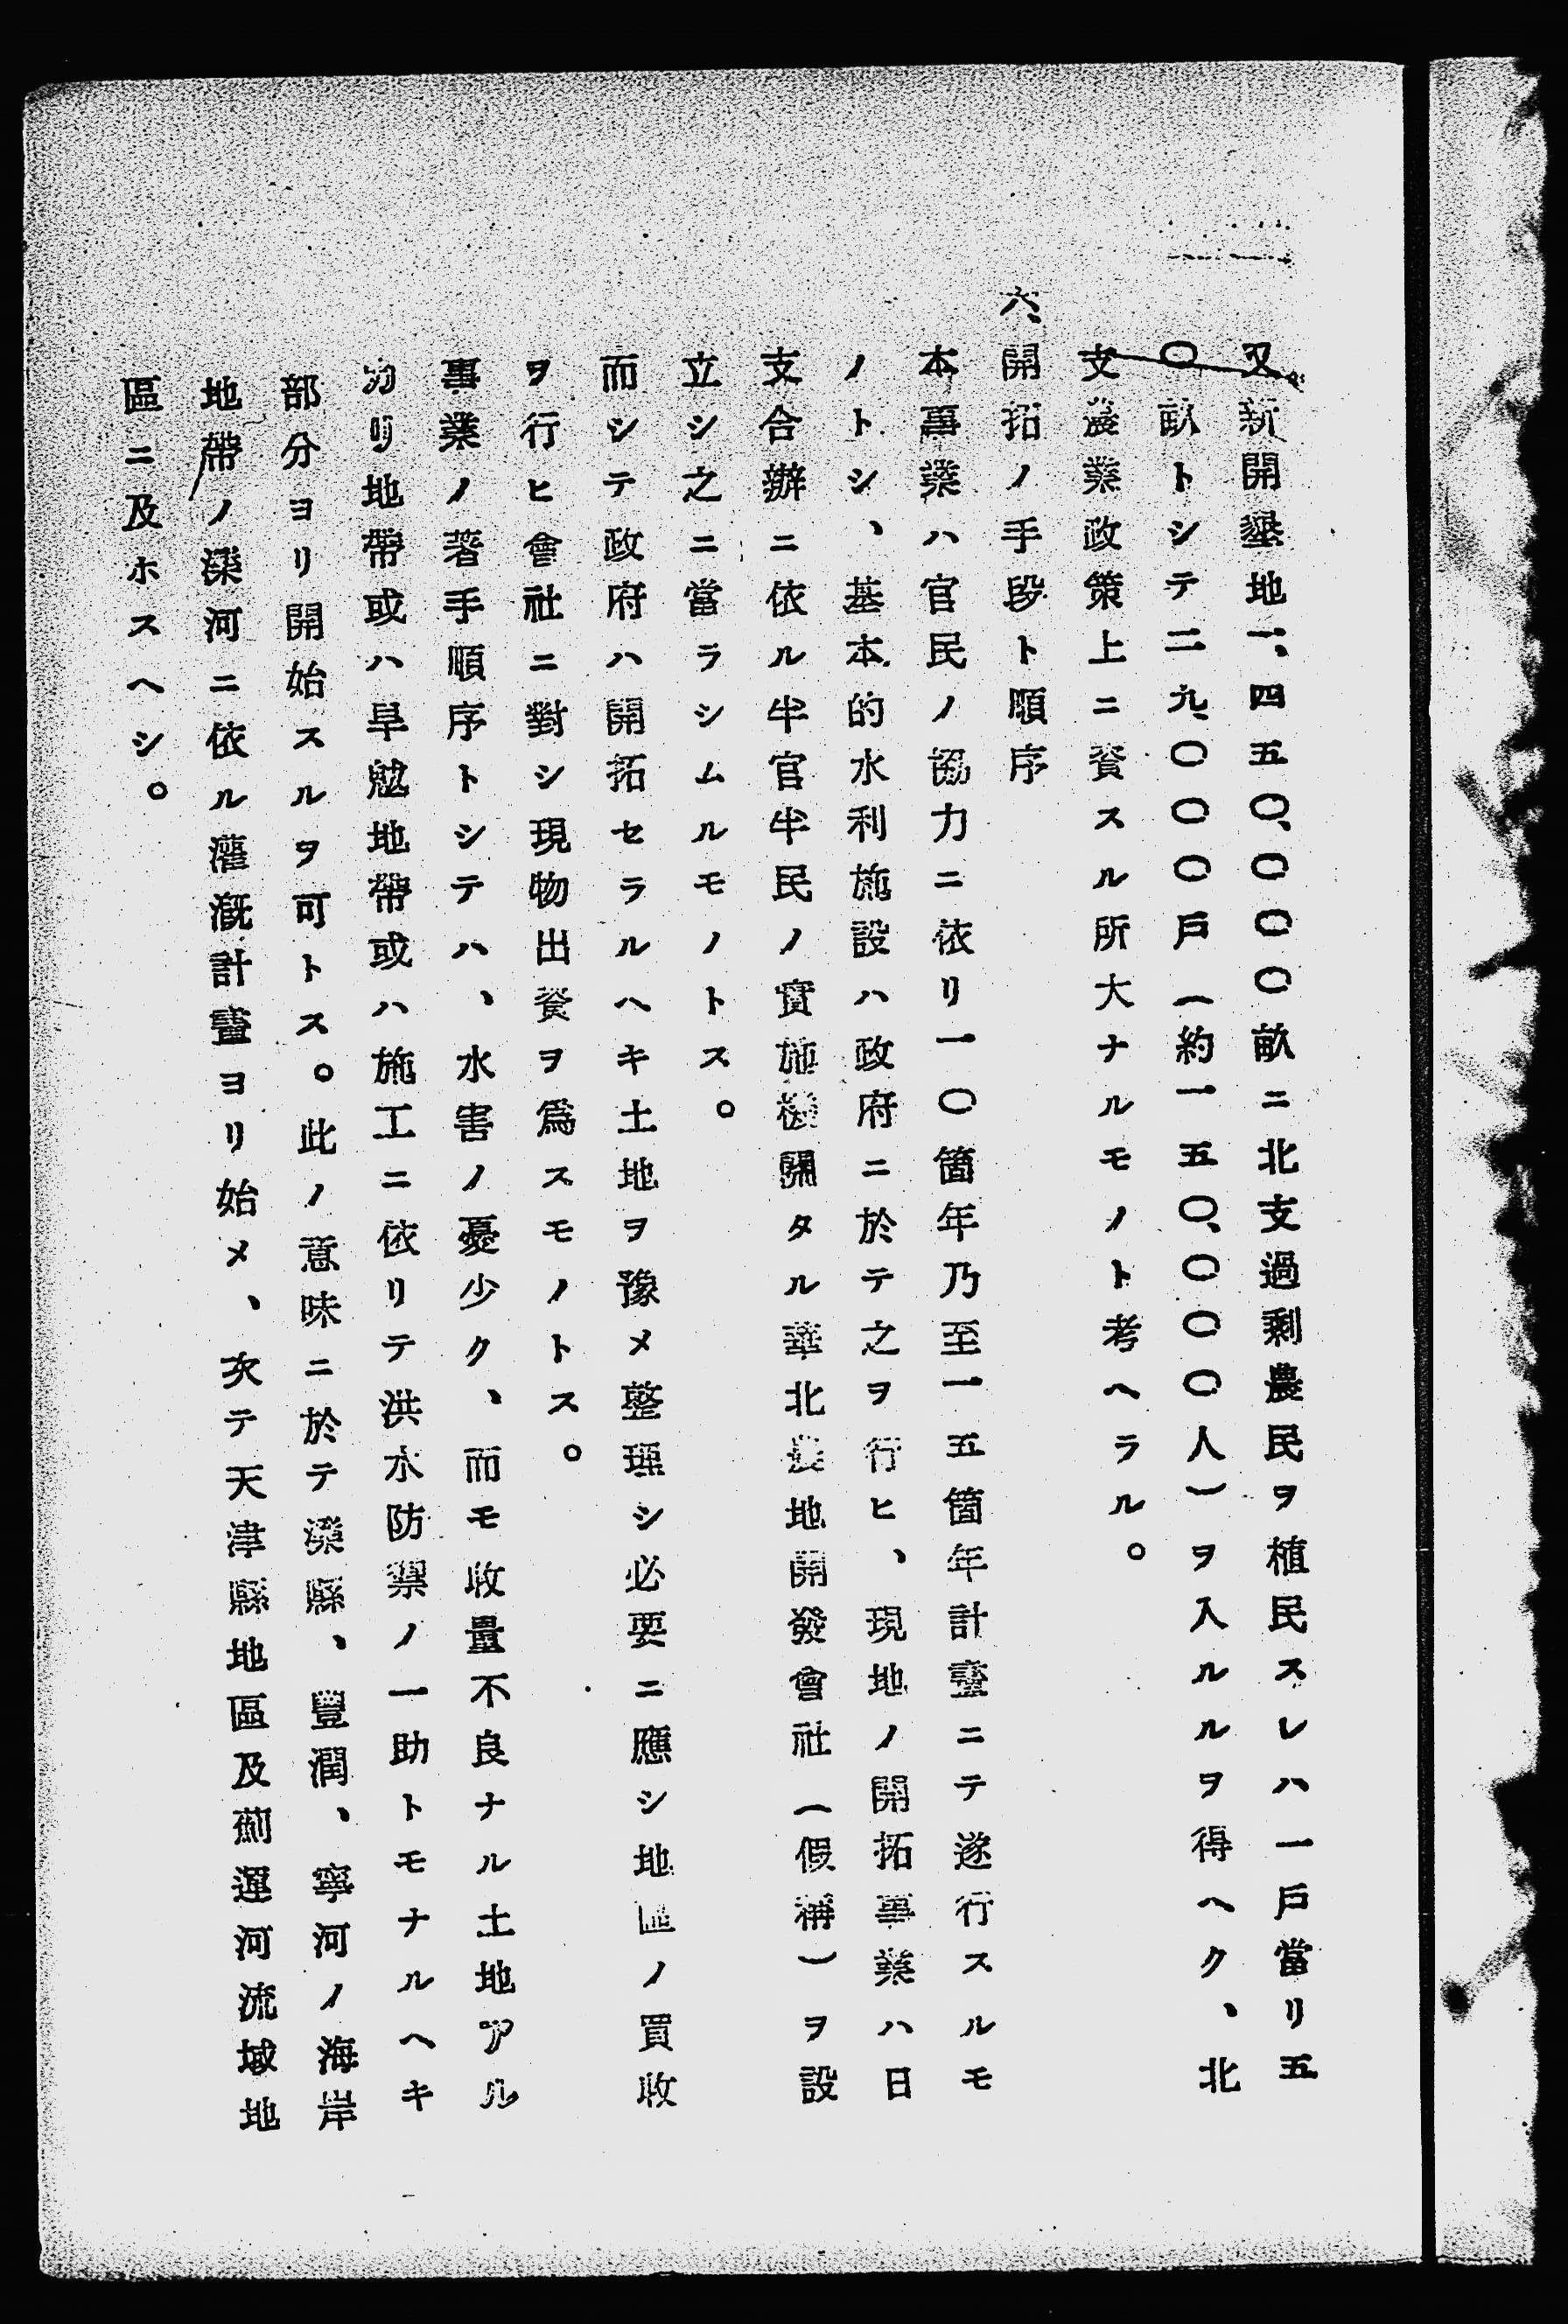 又新開墾地一、四五〇、〇〇〇畝ニ北支過剩農民ヲ植民スレハ一戸當リ五
〇畝トシテ二九、〇〇〇戸(約一五〇、〇〇〇人)ヲ入ルルヲ得ヘク、北
支農業政策上ニ資スル所大ナルモノト考ヘラル。
六、開拓ノ手段ト順序
本事業ハ官民ノ協力ニ依リ一〇箇年乃至一五箇年計畫ニテ遂行スルモ
ノトシ、基本的水利施設ハ政府ニ於テ之ヲ行ヒ、現地ノ開拓事業ハ日
支合辦ニ依ル半官半民ノ實施機關タル華北農地開發會社(假稱)ヲ設
立シ之ニ當ラシムルモノトス。
而シテ政府ハ開拓セラルヘキ土地ヲ豫メ整理シ必要ニ應シ地區ノ買收
ヲ行ヒ會社ニ對シ現物出資ヲ爲スモノトス。
事業ノ著手順序トシテハ、水害ノ憂少ク、而モ收量不良ナル土地アル
カリ地帶或ハ旱魃地帶或ハ施工ニ依リテ洪水防禦ノ一助トモナルヘキ
部分ヨリ開始スルヲ可トス。此ノ意味ニ於テ灤縣、豐潤、寧河ノ海岸
地帶ノ灤河ニ依ル灌漑計畫ヨリ始メ、次テ天津縣地區及薊運河流域地
區ニ及ホスヘシ。